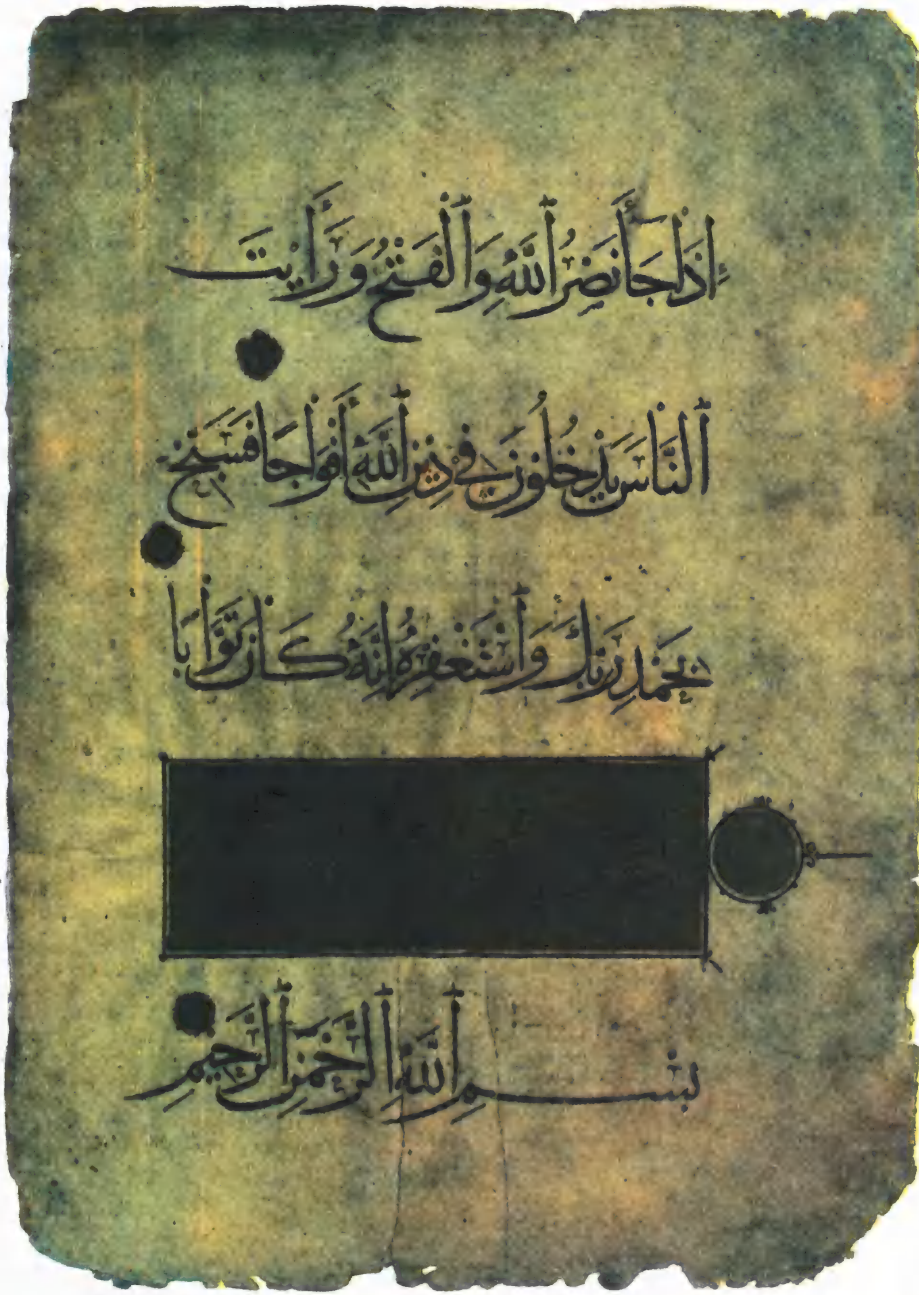 إِذَا جَآءَ نَصْرُ ٱللَّهِ وَٱلْفَتْحُ وَرَأَيْتَ
ٱلنَّاسَ يَدْخُلُونَ فِي دِينِ ٱللَّهِ أَفْوَاجًا فَسَبِّحْ
بِحَمْدِ رَبِّكَ وَٱسْتَغْفِرْهُ إِنَّهُ كَانَ تَوَّابًا
بِسْمِ ٱللَّهِ ٱلرَّحْمَنِ ٱلرَّحِيمِ